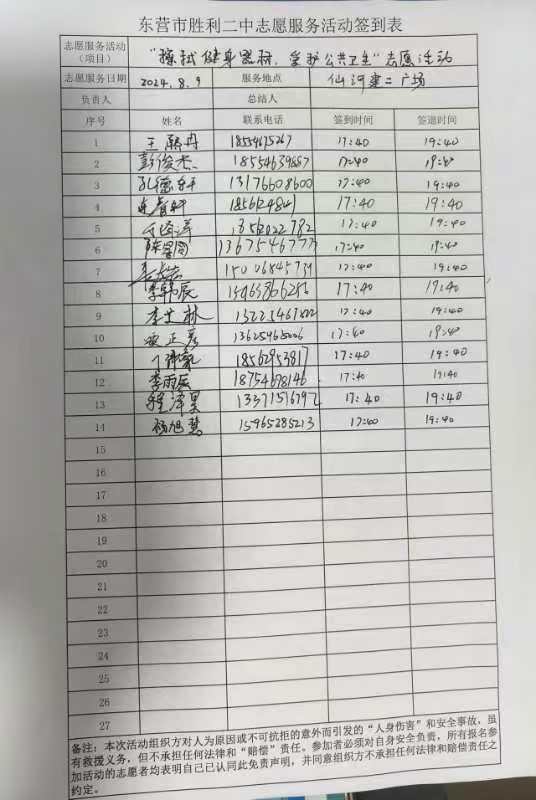 东营市胜利二中志愿服务活动签到表
志愿服务活动（项目） “擦拭健身器材，爱护公共卫生”志愿活动
志愿服务日期 2024.8.9 服务地点 仙河建二广场
负责人 总结人
序号 姓名 联系电话 签到时间 签退时间
1 17:40 19:40
2 彭俊杰 17:40 19:40
3 孔德轩 13176608600 17:40 19:40
4 17:40 19:40
5 17:40 19:40
6 17:40 19:40
7 17:40 19:40
8 李韩辰 17:40 19:40
9 17:40 19:40
10 17:40 19:40
11 18562953817 17:40 19:40
12 李雨辰 18754678146 17:40 19:40
13 程泽昊 17:40 19:40
14 杨旭慧 15965285213 17:40 19:40
15
16
17
18
19
20
21
22
23
24
25
26
27
备注：本次活动组织方对人为原因或不可抗拒的意外而引发的“人身伤害”和安全事故，虽
有救援义务，但不承担任何法律和“赔偿”责任。参加者必须对自身安全负责，所有报名参
加活动的志愿者均表明自己已认同此免责声明，并同意组织方不承担任何法律和赔偿责任之
约定。